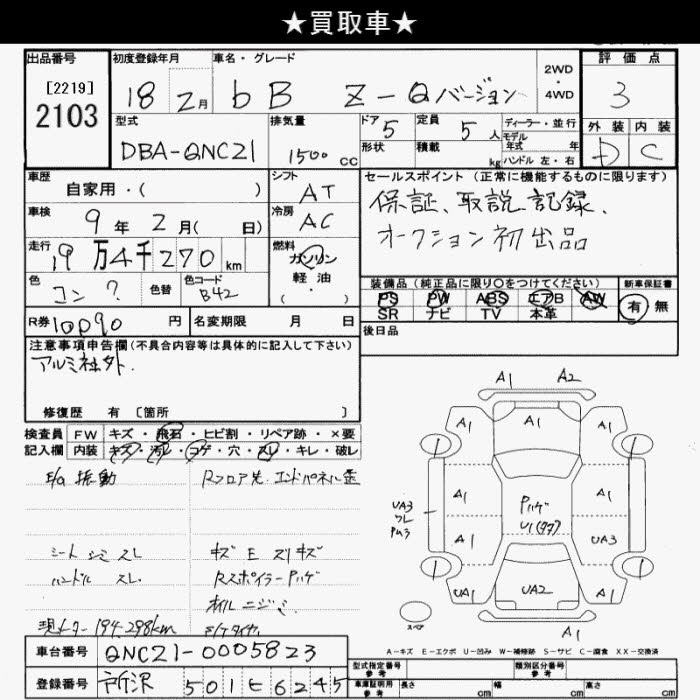 ★買取車★
出品番号
[2219]
2103
初度登録年月
18 2月
車名・グレード
bB Z-Qバージョン
2WD
・
4WD
評価点
3
型式
DBA-QNC21
排気量
1500 cc
ドア 5
形状
定員 5 人
積載 kg
ディーラー・並行
モデル
年式 年
ハンドル 左・右
外装 内装
D C
車歴
自家用・( )
シフト
AT
車検
9年2月( 日)
冷房
AC
走行
19万4千270 km
燃料
ガソリン
軽油
( ・ )
色
コン ?
色替
色コード
B42
R券 10090 円
名変期限 月 日
セールスポイント(正常に機能するものに限ります)
保証、取説、記録、
オークション初出品
装備品(純正品に限り○をつけてください)
新車保証書
PS PW ABS エアB AW
有 無
SR ナビ TV 本革
後日品
注意事項申告欄(不具合内容等は具体的に記入して下さい)
アルミ社外.
修復歴 有 [箇所 ]
検査員 FW キズ・飛石・ヒビ割・リペア跡・×要
記入欄 内装 キズ・汚レ・コゲ・穴・スレ・キレ・破レ
E/g 振動
Rフロア先、エンドパネル歪
シート シミ スレ
キズ E スリキズ
ハンドル スレ.
Rスポイラー Pハゲ
オイル ニジミ
現メーター194,298km
車台番号 QNC21-0005823
登録番号 所沢 501 せ 6245
A1 A2
A1 A1
1 1
A1 A1
Pハゲ
UA3
ワレ
U1(タタ)
A1 UA3
1 1
UA1 UA2 A1
スペア
A1
A-キズ E-エクボ U-凹み W-補修跡 S-サビ C-腐食 XX-交換済
型式指定番号
参考
類別区分番号
参考
車庫証明用
参考
長さ cm
幅 cm
高さ cm